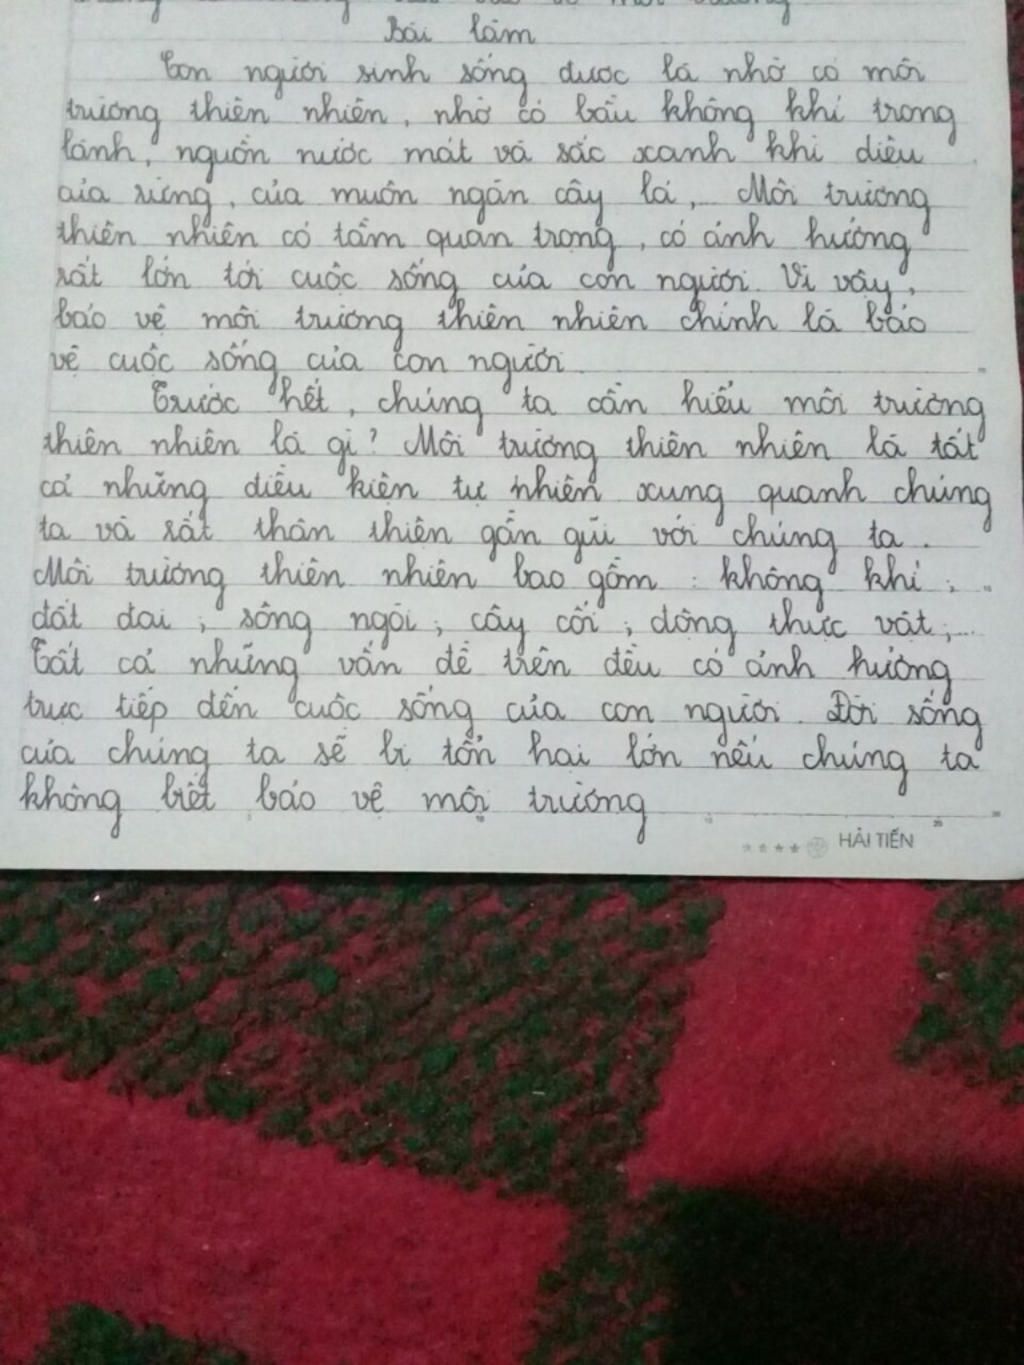 Bài làm
Con người sinh sống được là nhờ có môi
trường thiên nhiên, nhờ có bầu không khí trong
lành, nguồn nước mát và sắc xanh khi diệu
của rừng, của muôn ngàn cây lá,... Môi trường
thiên nhiên có tầm quan trọng, có ảnh hưởng
rất lớn tới cuộc sống của con người. Vì vậy,
bảo vệ môi trường thiên nhiên chính là bảo
vệ cuộc sống của con người.
Trước hết, chúng ta cần hiểu môi trường
thiên nhiên là gì? Môi trường thiên nhiên là tất
cả những điều kiện tự nhiên xung quanh chúng
ta và rất thân thiện gần gũi với chúng ta.
Môi trường thiên nhiên bao gồm: không khí;
đất đai; sông ngòi; cây cối; động thực vật;...
Tất cả những vấn đề trên đều có ảnh hưởng
trực tiếp đến cuộc sống của con người. Đời sống
của chúng ta sẽ bị tổn hại lớn nếu chúng ta
không biết bảo vệ môi trường
HẢI TIẾN